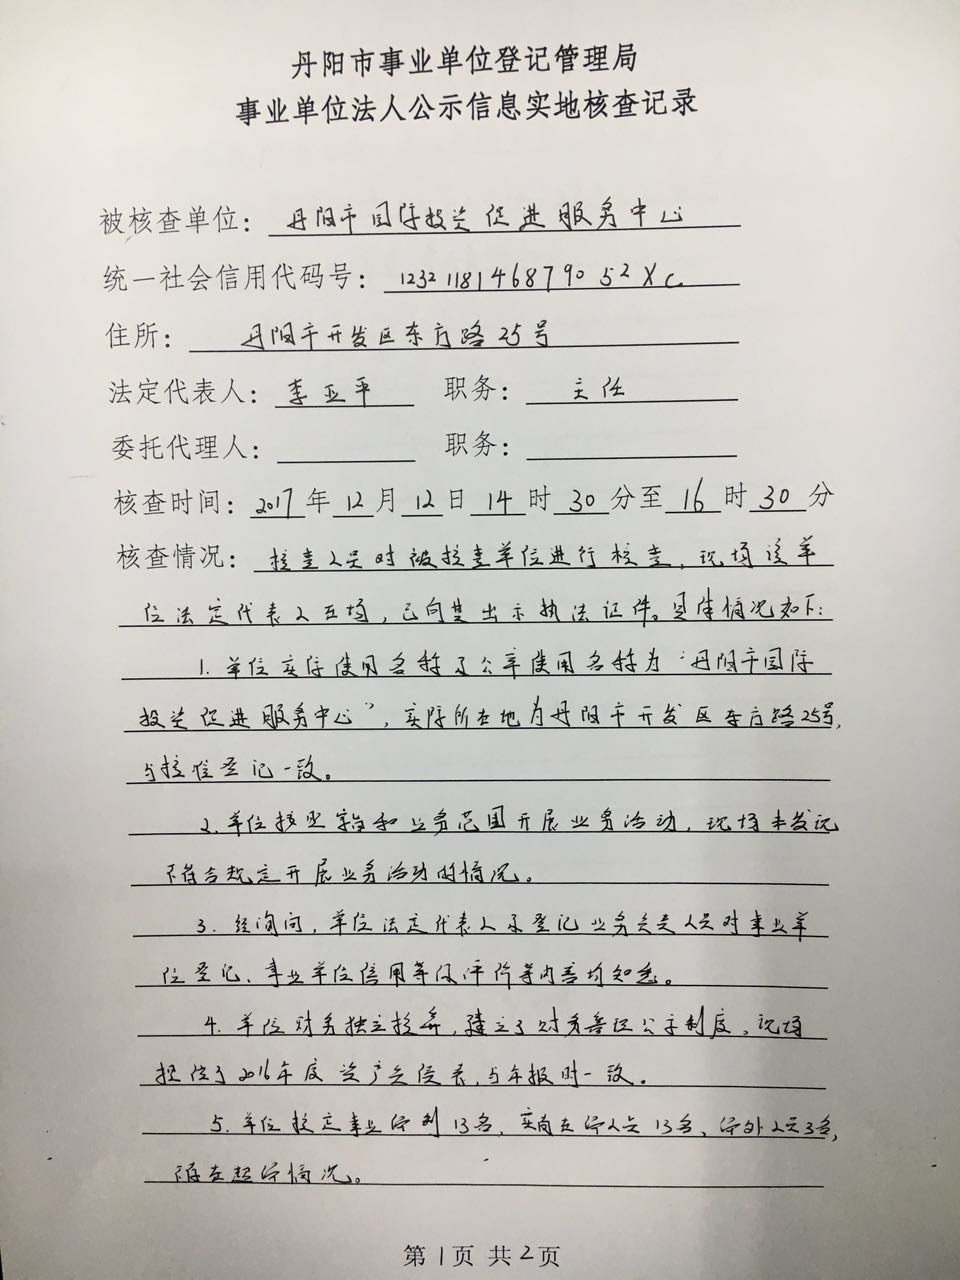 丹阳市事业单位登记管理局
事业单位法人公示信息实地核查记录
被核查单位：丹阳市国际投资促进服务中心
统一社会信用代码号：1232118146879052XC
住所：丹阳市开发区东方路25号
法定代表人：李亚平 职务：主任
委托代理人： 职务：
核查时间：2017年12月12日14时30分至16时30分
核查情况：核查人员对被核查单位进行核查，现场该单
位法定代表人在场，已向其出示执法证件。具体情况如下：
1.单位实际使用名称及公章使用名称为“丹阳市国际
投资促进服务中心”，实际所在地为丹阳市开发区东方路25号，
与核准登记一致。
2.单位按照宗旨和业务范围开展业务活动，现场未发现
不符合规定开展业务活动的情况。
3.经询问，单位法定代表人及登记业务负责人员对事业单
位登记、事业单位信用等级评价等内容均知悉。
4.单位财务独立核算，建立了财务管理公示制度，现场
提供了2016年度资产负债表，与年报时一致。
5.单位核定事业编制13名，实有在编人员13名、编外人员3名，
不存在超编情况。
第1页 共2页